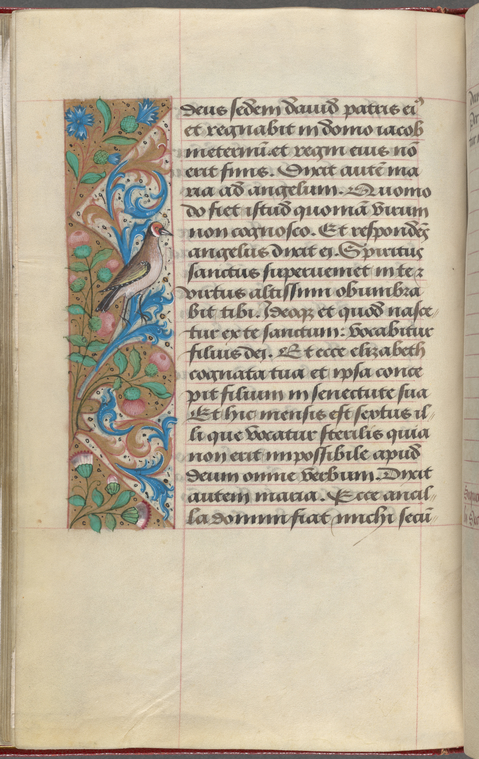 deus sedem dauid patris eiꝰ
et regnabit in domo iacob
in eternū. et regni eius nō
erit finis. Dixit autē ma
ria ad angelum. Quomo
do fiet istud quoniā virum
non cognosco. Et respondēs
angelus dixit ei. Spiritus
sanctus superueniet in te ⁊
virtus altissimi obumbra
bit tibi. Ideoqꝫ et quod nasce
tur ex te sanctum: vocabitur
filius dei. Et ecce elizabeth
cognata tua et ipsa conce
pit filium in senectute sua
Et hic mensis est sextus il-
li que vocatur sterilis quia
non erit impossibile apud
deum omne verbum. Dixit
autem maria. Ecce ancil-
la domini fiat michi secū